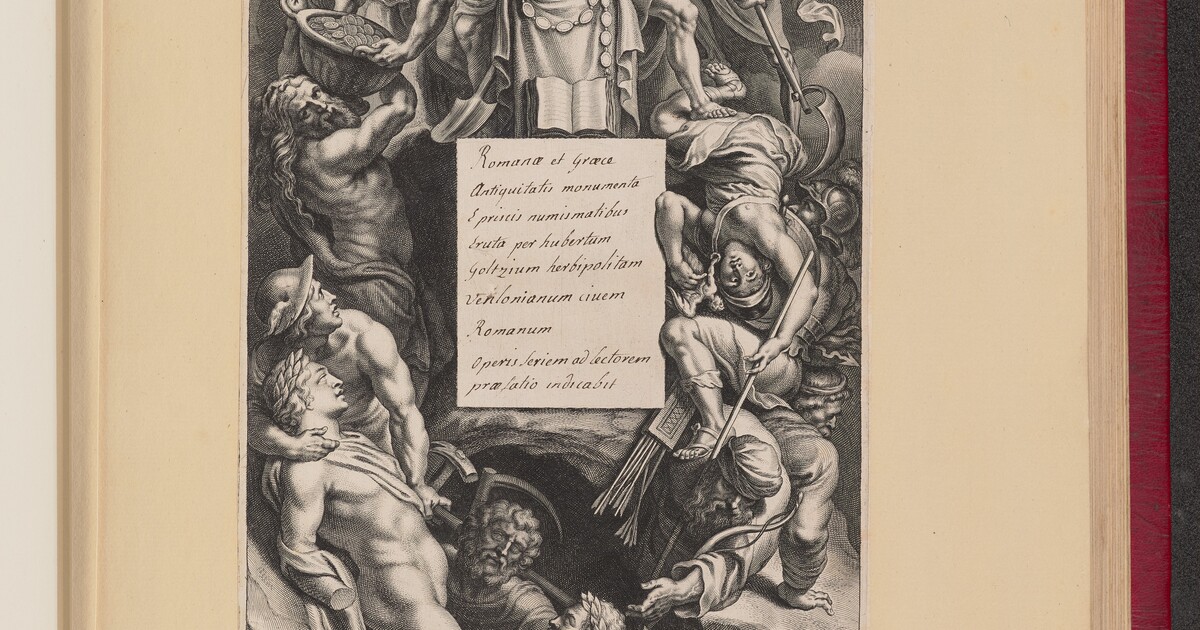 Romanæ et Græce
Antiquitatis monumenta
E priscis numismatibus
Eruta per hubertum
Goltzium herbipolitam
Venlonianum civem
Romanum
Operis seriem ad lectorem
præfatio indicabit